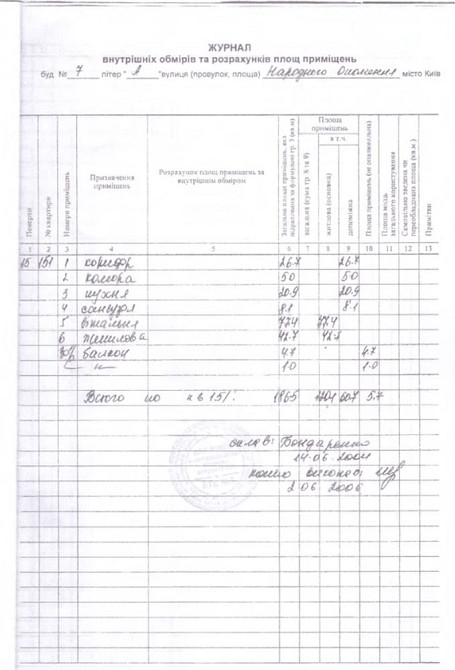 ЖУРНАЛ
внутрішніх обмірів та розрахунків площ приміщень
буд № 7 літер " А " вулиця (провулок, площа) Народного Ополчення місто Київ
Поверхи
№ квартири
Номери приміщень
Призначення приміщень
Розрахунок площ приміщень за внутрішнім обміром
Площа приміщень
в т.ч.
житлова (основна)
допоміжна
Площа приміщень (не опалювальна)
Площа місць загального користування
Самочинно зведена чи переобладнана площа (кв.м.)
Примітки
1 2 3 4 5 6 7 8 9 10 11 12 13
15 151 1 коридор 26.7 26.7
2 комора 5.0 5.0
3 кухня 20.9 20.9
4 санвузол 8.1 8.1
5 вітальня 77.4 77.4
6 житлова 42.7 42.7
балкон 4.7 4.7
1.0 1.0
Всього по кв 151: 5.7
склав: Бондаренко
14.06.2004
2.06.2006